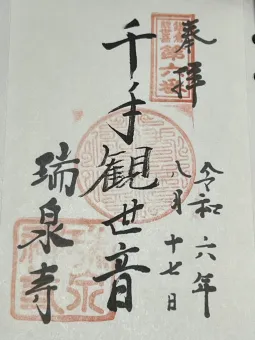 奉拝
令和六年
八月十七日
千手観世音
瑞泉寺